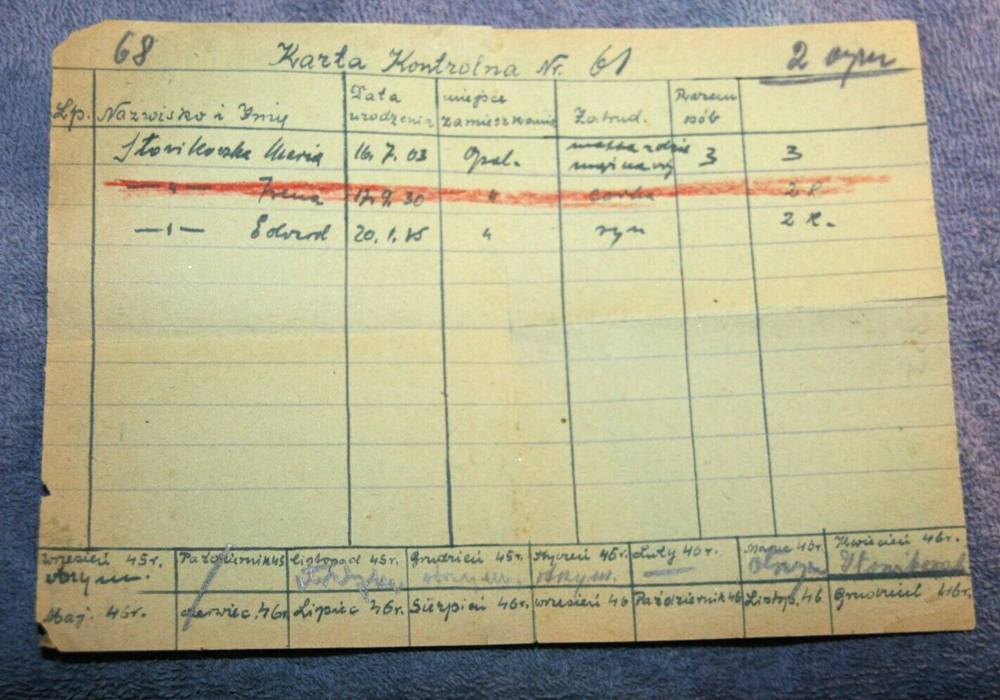 68 Karta Kontrolna Nr. 61
Lp. Nazwisko i Imię Data urodzenia miejsce zamieszkania Zatrud. Razem osób
Maria 16.7.03 Opal. 3 3
—"— Irena 17.9.30 " córka 2 R
—"— Edward 20.1. " syn 2 R.
Wrzesień 45r. Październik 45 Listopad 45r. Grudzień 45r. Styczeń 46r. Luty 46r. Marzec 46r. Kwiecień 46r.
otrzym. otrzym. otrzym.
Maj. 46r. czerwiec. 46r. Lipiec 46r. Sierpień 46r. wrzesień 46 Październik 46 Listop. 46 Grudzień 46r.